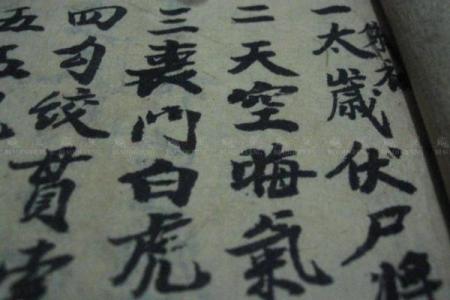 一太歲伏尸
二天空晦氣
三喪門白虎
四勾绞貫索
五五